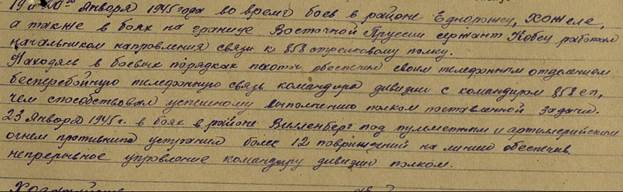 19 и 20го Января 1945 года во время боев в районе Еднорожец, Хожеле,
а также в боях на границе Восточной Пруссии сержант работал
начальником направления связи к 858 стрелковому полку.
Находясь в боевых порядках пехоты обеспечил своим телефонным отделением
бесперебойную телефонную связь командира дивизии с командиром 858 сп,
чем способствовал успешному выполнению полком поставленной задачи.
23 Января 1945г. в боях в районе Виленберг под пулеметным и артиллерийским
огнем противника устранил более 12 повреждений на линии обеспечив
непрерывное управление командиру дивизии полком.